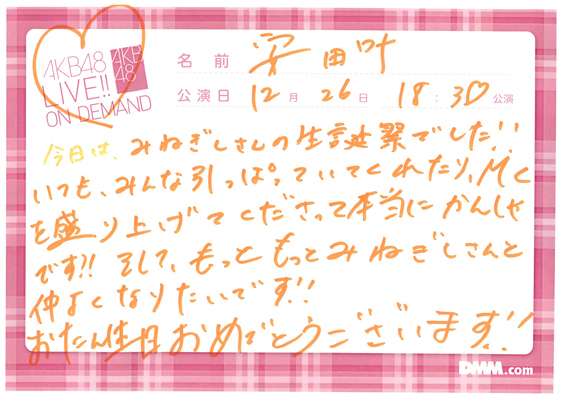 AKB48
LIVE!!
ON DEMAND
AKB
48
名前 安田叶
公演日 12月26日 18:30♡公演
今日は、みねぎしさんの生誕祭でした!!
いつも、みんな引っぱっていてくれたり、MC
を盛り上げてくださって本当にかんしゃ
です!! そして、もっともっとみねぎしさんと
仲よくなりたいです!!
おたん生日おめでとうございます!!
DMM.com